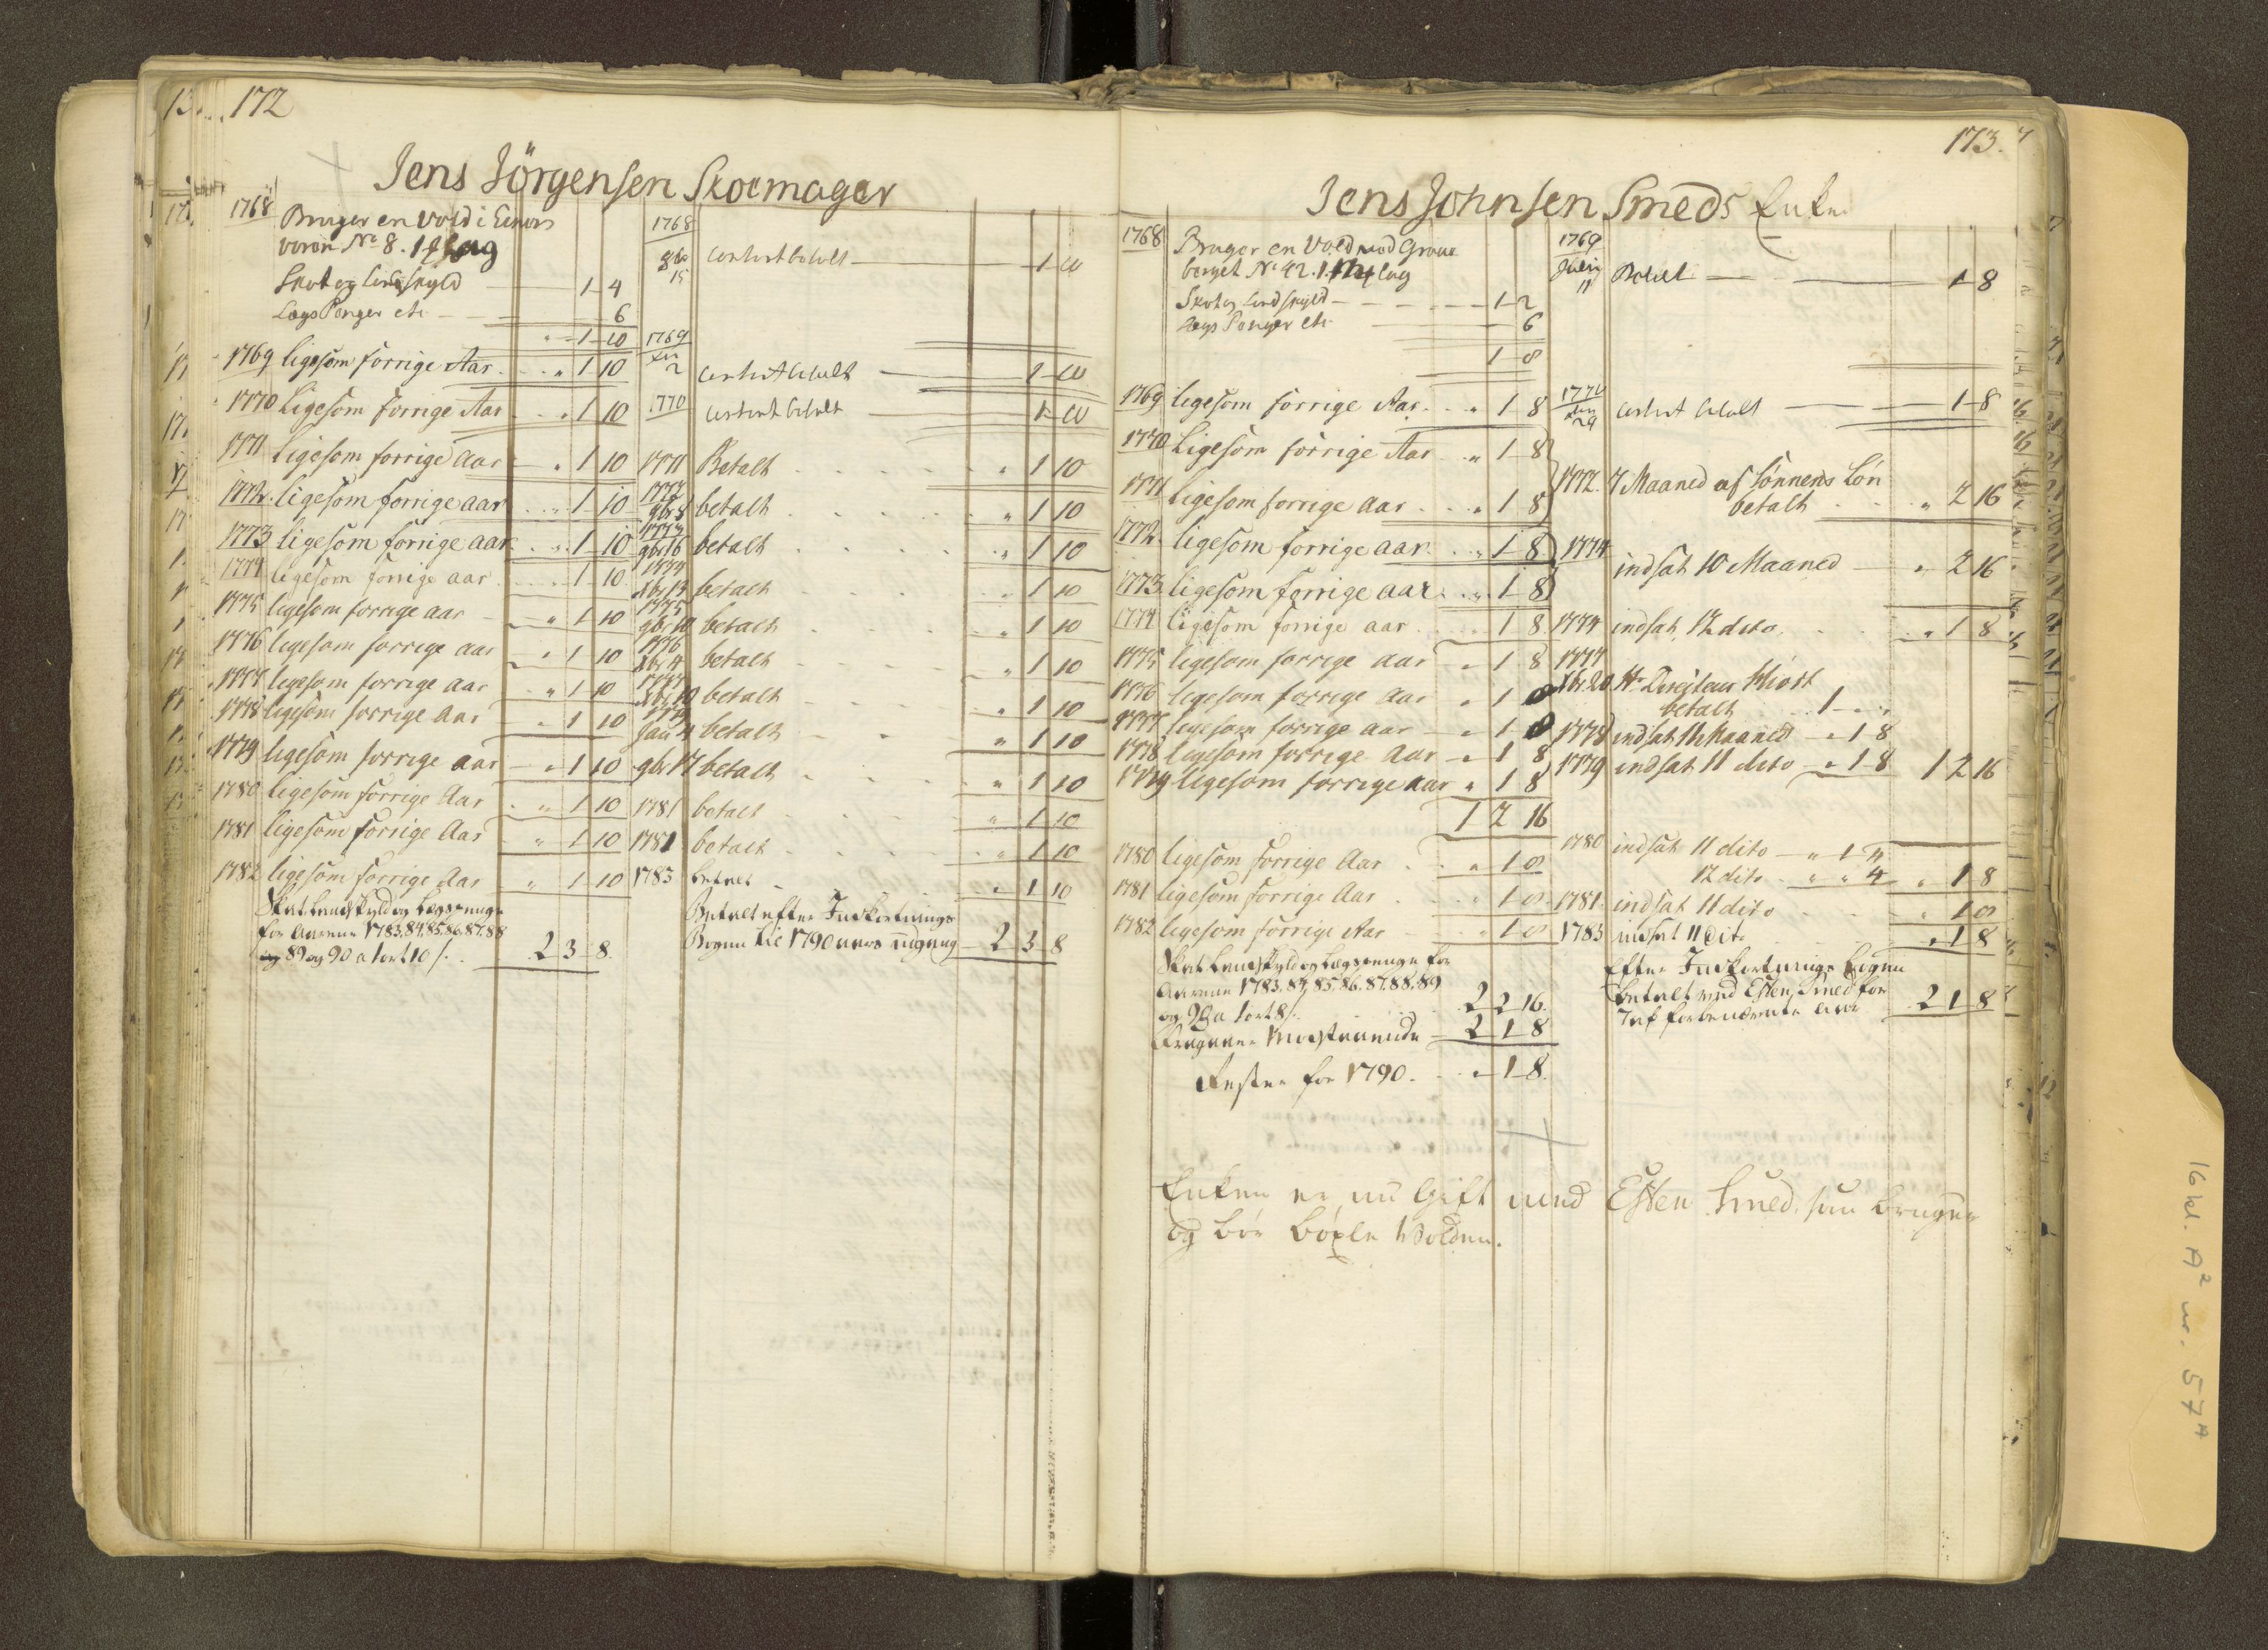 172
Jens Jörgensen Skoemager
1768 Bruger en Vold i Einers
voran No 8. 1
Skat og Lindskyld 1 4
Lægs Penger etc 6
" 1 10
1769 ligesom forrige Aar " 1 10
1770 Ligesom forrige Aar " 1 10
1771 Ligesom forrige aar " 1 10
1772 ligesom forrige aar " 1 10
1773 ligesom forrige aar " 1 10
1774 ligesom forrige aar " 1 10
1775 ligesom forrige aar " 1 10
1776 ligesom forrige aar " 1 10
1777 ligesom forrige aar " 1 10
1778 ligesom forrige aar " 1 10
1779 ligesom forrige aar " 1 10
1780 ligesom forrige Aar " 1 10
1781 ligesom forrige Aar " 1 10
1782 ligesom forrige Aar " 1 10
Skat Landskyld og Lægspenge
for Aarene 1783. 84. 85. 86. 87. 88
og 89 og 90 a 1 ort 10 s. 2 3 8.
1768
gbr 15 Contant betalt 1 10
1769
2 Contant betalt 1 10
1770 Contant betalt 1 10
1771 Betalt " 1 10
1772
gbr 8 betalt " 1 10
1773
gbr 16 betalt " 1 10
1774
Xbr 13 betalt " 1 10
1775
gbr 10 betalt " 1 10
1776
Xbr 4 betalt " 1 10
1777
Xbr 10 betalt " 1 10
1779
Jan 11 betalt " 1 10
gbr 17 betalt " 1 10
1781 betalt " 1 10
1781 betalt " 1 10
1783 betalt " 1 10
Betalt efter Indkortnings
Bogen til 1790 aars udgang 2 3 8
173.
Jens Johnsen Smeds Enke
1768 Bruger en Vold mod Grau
berget No 42. 1
Skat og Lindskyld 1 2
Lægs Penger etc 6
1 8
1769 ligesom forrige Aar " 1 8
1770 Ligesom forrige Aar " 1 8
1771 ligesom forrige aar " 1 8
1772 ligesom forrige aar " 1 8
1773 ligesom forrige aar " 1 8
1774 ligesom forrige aar 1 8
1775 ligesom forrige aar " 1 8
1776 ligesom forrige aar " 1 8
1777 ligesom forrige aar " 1 8
1778 ligesom forrige aar " 1 8
1779 ligesom forrige aar " 1 8
1 2 16
1780 ligesom forrige Aar " 1 8
1781 ligesom forrige Aar " 1 8
1782 ligesom forrige Aar " 1 8
Skat Landskyld og Lægspenge for
Aarene 1783. 84. 85. 86. 87. 88. 89
og 90 a 1 ort 8 s. 2 2 16.
Fragaaer Modstaaende 2 1 8
Rester for 1790. " 1 8.
1769
Julij 11 Betalt 1 8
1770
29 Contant betalt 1 8
1772. 7 Maaned af Sönnens Lön
betalt " 2 16
1774 indsat 10 Maaned " 2 16
1774 indsat 12 dito " 1 8
1777
Xbr 20 Hr Directeur Hiort
betalt 1 " "
1778 indsat 11 Maaned " 1 8
1779 indsat 11 dito " 1 8 1 2 16
1780 indsat 11 dito " 1 4
12 dito " " 4 " 1 8
1781 indsat 11 dito " 1 8
1783 indsat 11 dito " 1 8
Efter Indkortnings Bogen
betalt med Esten Smed for
forbenævnte Aar 2 1 8
Enken er nu Gift med Esten Smed, som bruger
og bör böxle Volden.
16 kl. A2 nr. 57A